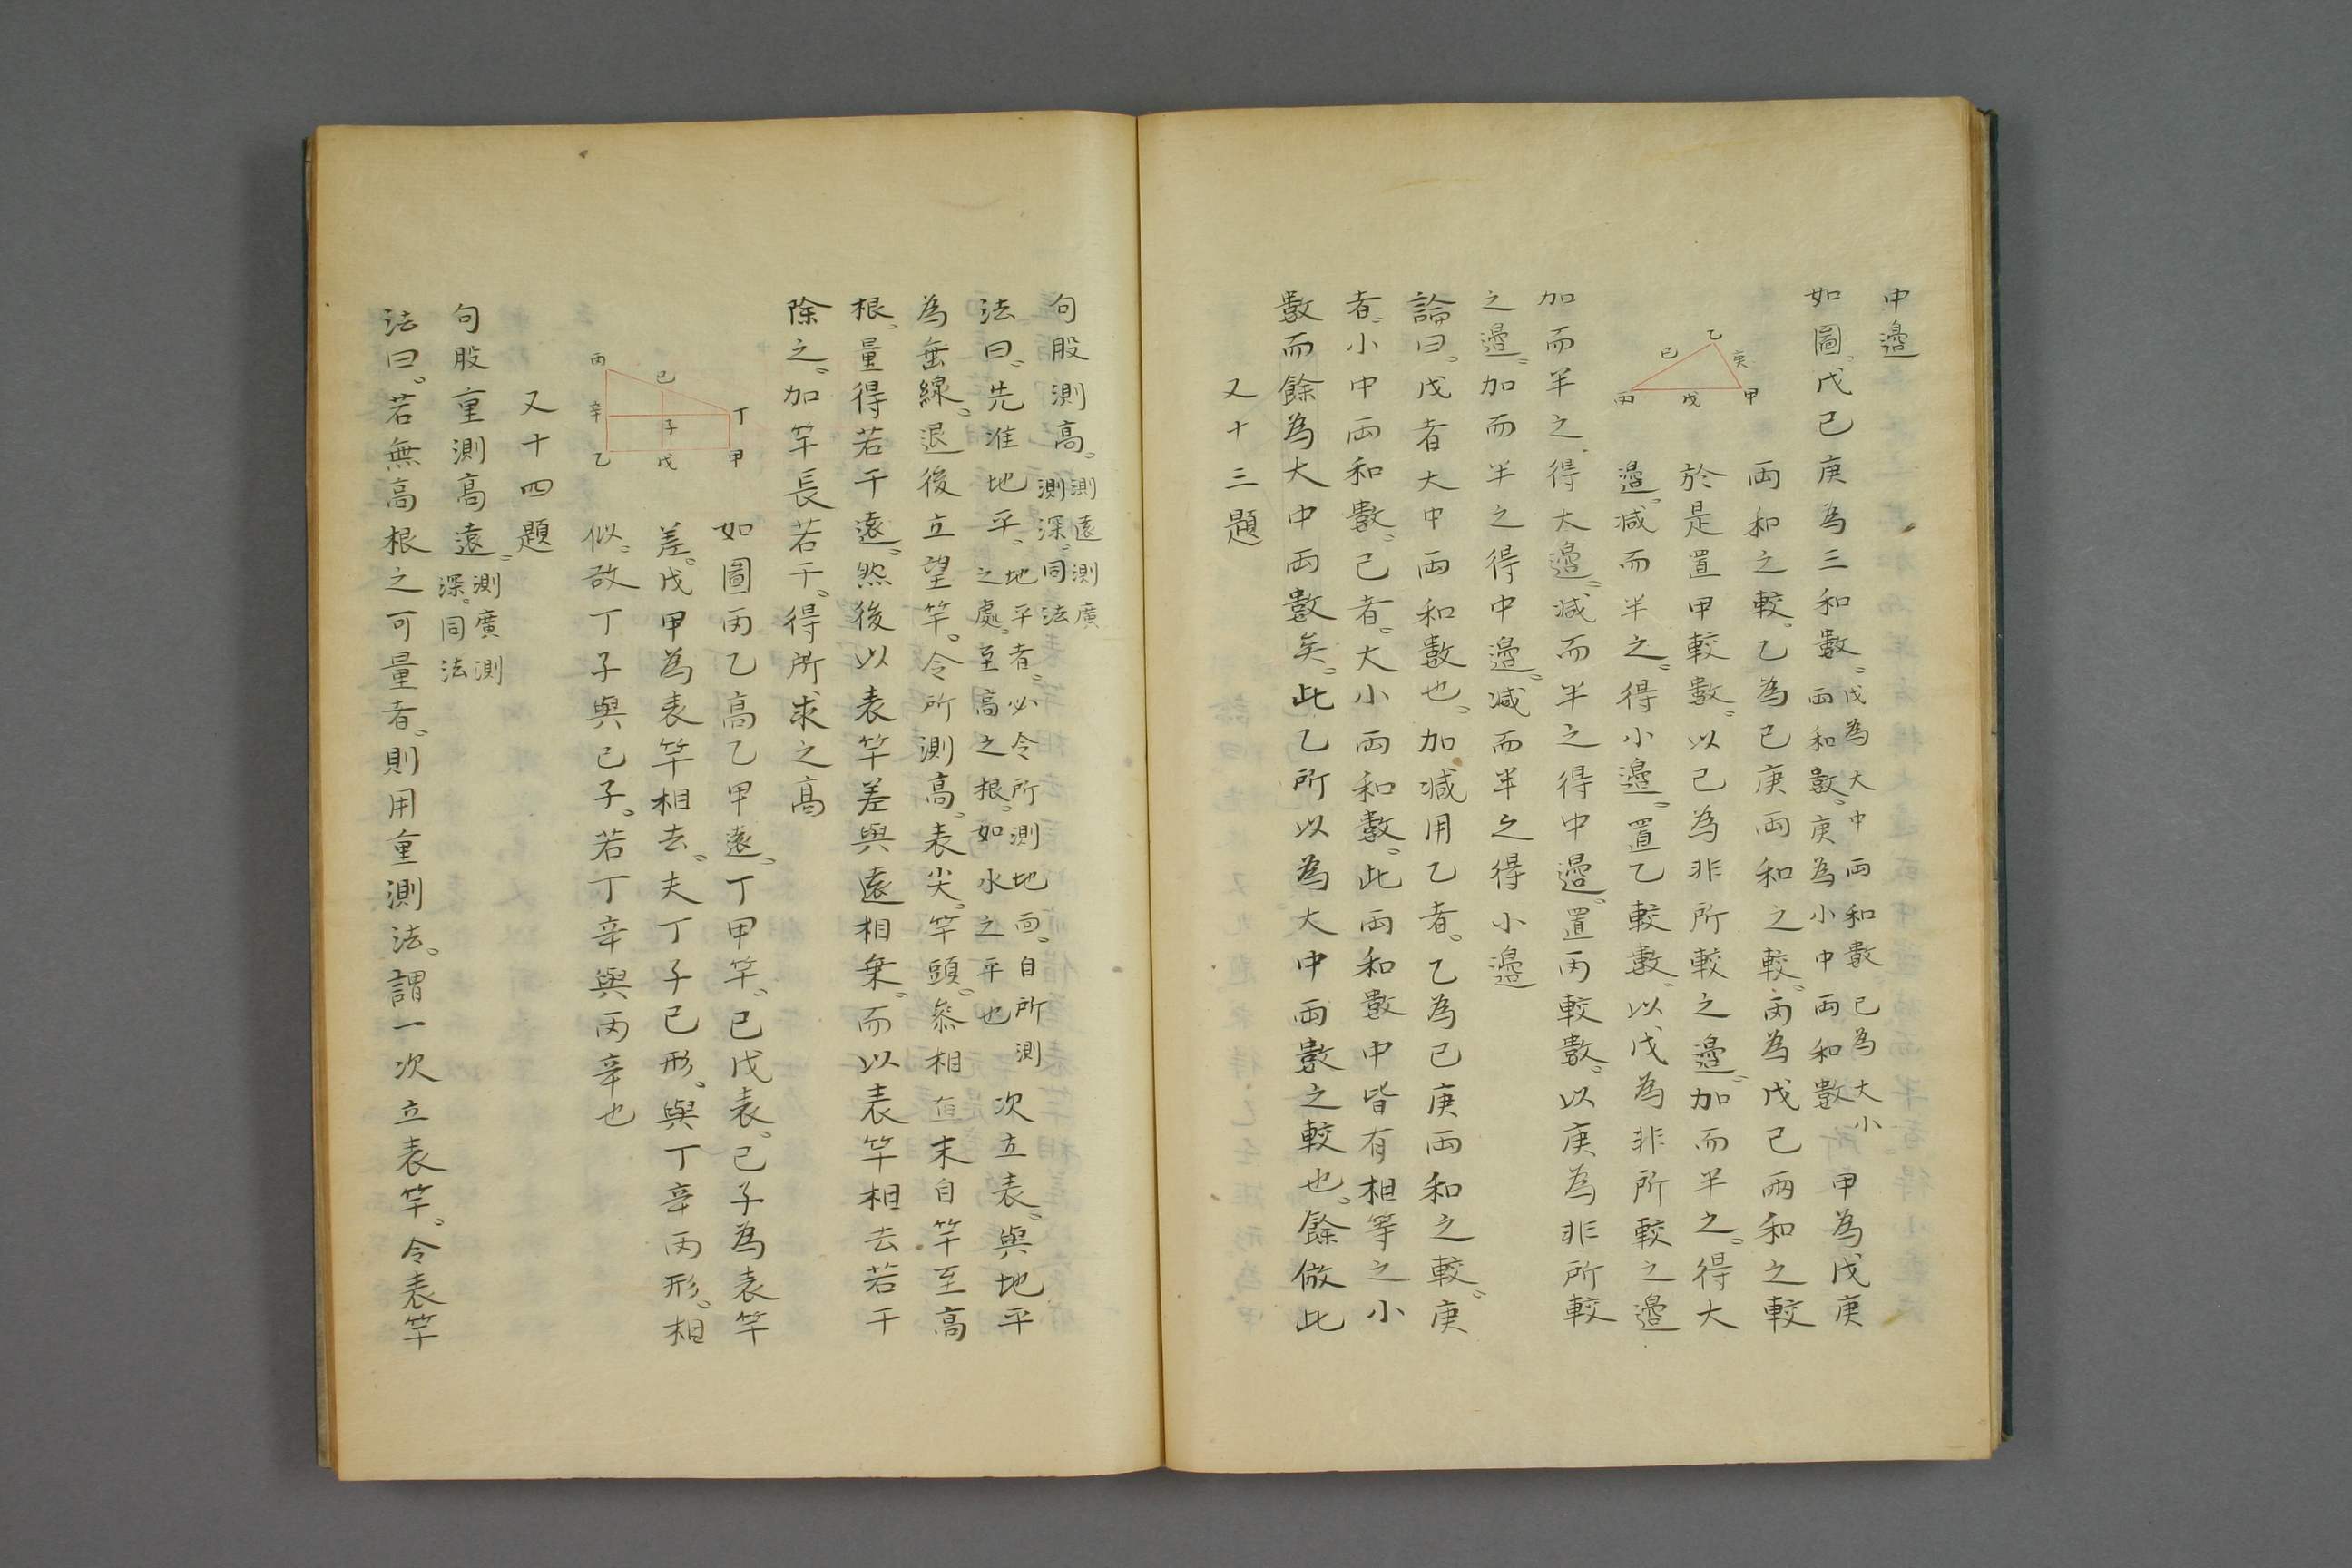 中邊
如圖。戊己庚為三和數。戊為大中兩和數己為大小兩和數。庚為小中兩和數甲為戊庚
兩和之較。乙為己庚兩和之較。丙為戊己兩和之較
於是置甲較數。以己為非所較之邊。加而半之。得大
邊。減而半之。得小邊。置乙較數。以戊為非所較之邊
乙
己
庚
丙
戊
甲
加而半之。得大邊。減而半之得中邊。置丙較數。以庚為非所較
之邊。加而半之得中邊。減而半之得小邊
論曰。戊者大中兩和數也。加減用乙者。乙為己庚兩和之較。庚
者。小中兩和數。己者。大小兩和數。此兩和數中皆有相等之小
數而餘為大中兩數矣。此乙所以為大中兩數之較也。餘倣此
又十三題
句股測高。測遠測廣測深。同法
法曰。先准地平。地平者。必令所測地面。自所測之處。至高之根。如水之平也次立表。與地平
為垂線。退後立望竿。令所測高。表尖。竿頭。叅相直末自竿至高
根。量得若干遠。然後以表竿差與遠相乗。而以表竿相去若干
除之。加竿長若干。得所求之高
丙
己
丁
辛
子
乙
戊
甲
如圖丙乙高乙甲遠。丁甲竿。己戊表。己子為表竿
差。戊甲為表竿相去。夫丁子己形。與丁辛丙形。相
似。故丁子與己子。若丁辛與丙辛也
又十四題
句股重測高遠。測廣測深。同法
法曰。若無高根之可量者。則用重測法。謂一次立表竿。令表竿